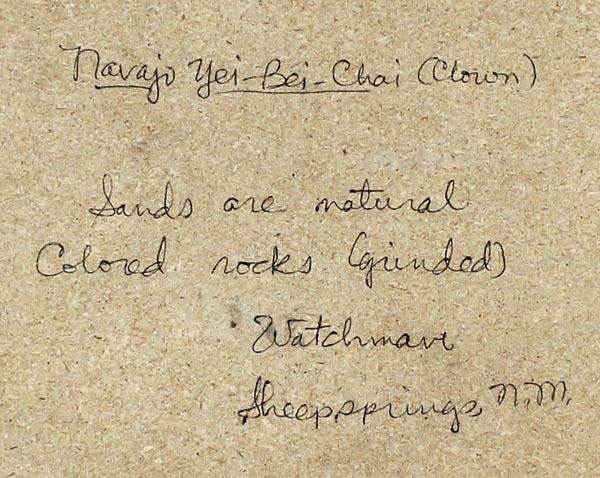 Navajo Yei-Bei-Chai (Clown)
Sands are natural
Colored rocks (grinded)
Watchman
Sheepsprings, N.M.